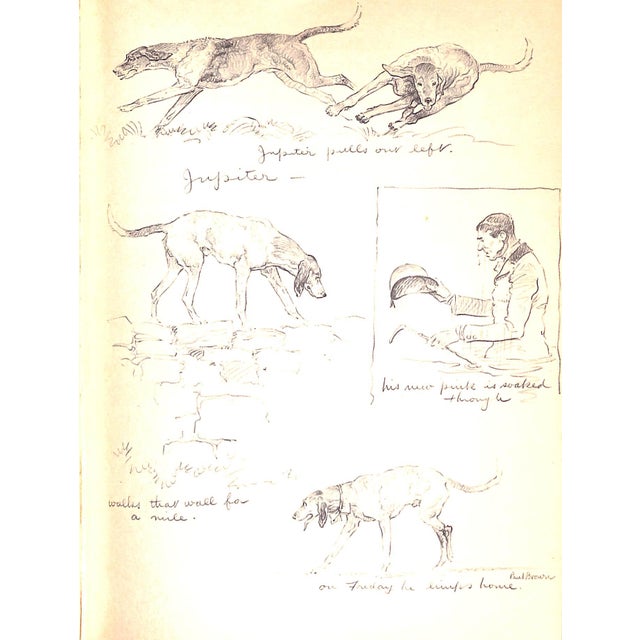 Jupiter pulls out left.
Jupiter —
his new pink is soaked
through
walks that wall for
a mile.
Paul Brown
on Friday he limps home.